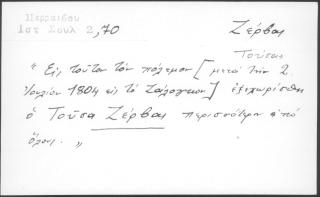 Περραιβου
Ιστ Σουλ 2,70
Ζέρβας
Τούσας
" Εις τούτον τον πόλεμον [ μετά την 2
Ιουλίου 1804 εις το Ζάλογγον ] εξεχωρίσθη
ο Τούσα Ζέρβας περισσότερον από
όλους. "